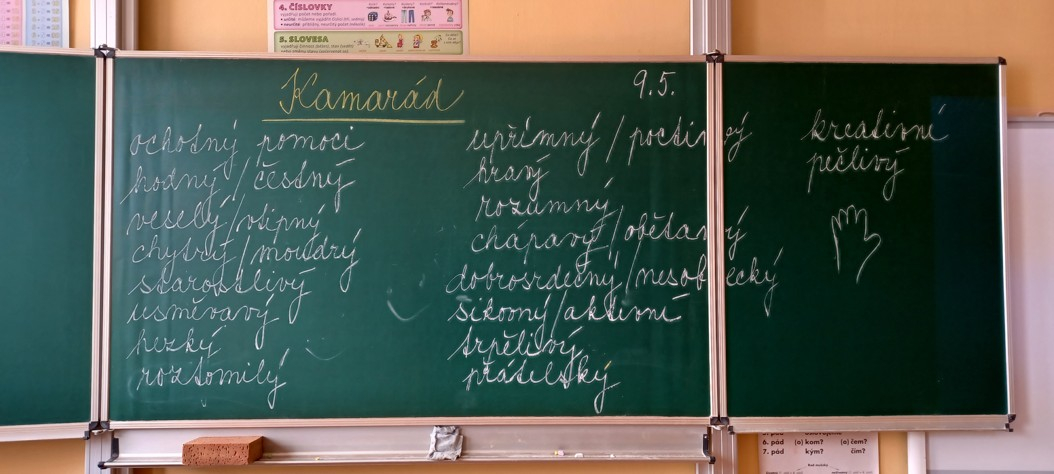 4. ČÍSLOVKY
5. SLOVESA
Kamarád
9.5.
ochotný pomoci
hodný/čestný
veselý/vtipný
chytrý/moudrý
starostlivý
usměvavý
hezký
roztomilý
upřímný/poctivý
hravý
rozumný
chápavý/obětavý
dobrosrdečný/nesobecký
šikovný/aktivní
trpělivý
přátelský
kreativní
pečlivý
6. pád (o) kom? (o) čem?
7. pád kým? čím?